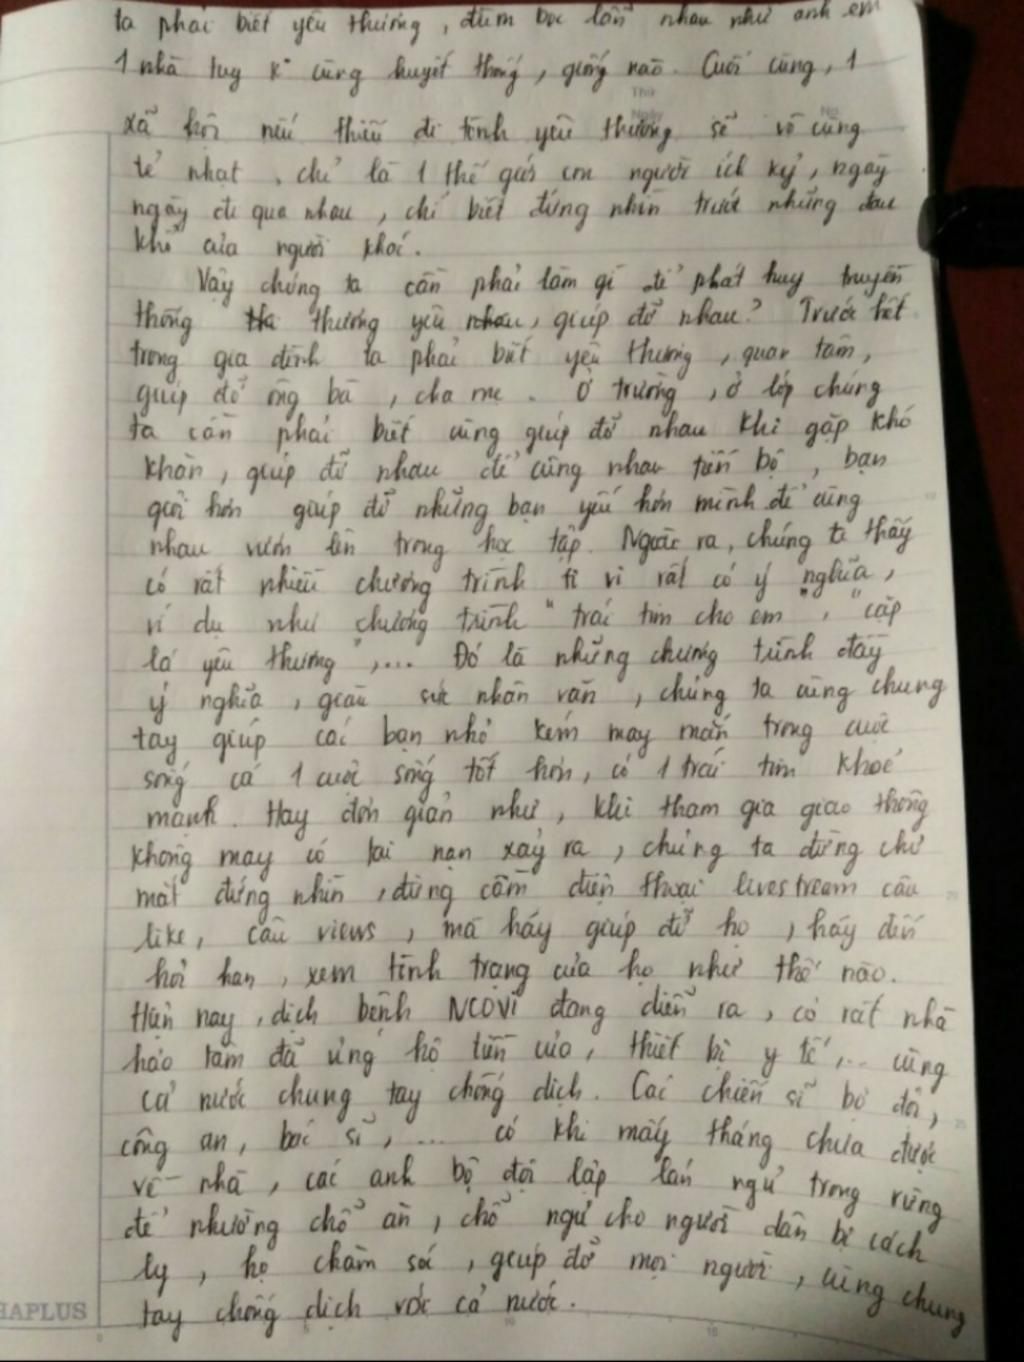 ta phải biết yêu thương, đùm bọc lẫn nhau như anh em
1 nhà tuy k° cùng huyết thống, giống nào. Cuối cùng, 1
xã hội nếu thiếu đi tình yêu thương sẽ vô cùng
tẻ nhạt, chỉ là 1 thế giới con người ích kỷ, ngày
ngày đi qua nhau, chỉ biết đứng nhìn trước những đau
khổ của người khác.
Vậy chúng ta cần phải làm gì để phát huy truyền
thống thương yêu nhau, giúp đỡ nhau? Trước hết
trong gia đình ta phải biết yêu thương, quan tâm,
giúp đỡ ông bà, cha mẹ. Ở trường, ở lớp chúng
ta cần phải biết cùng giúp đỡ nhau khi gặp khó
khăn, giúp đỡ nhau để cùng nhau tiến bộ, bạn
giỏi hơn giúp đỡ những bạn yếu hơn mình để cùng
nhau vươn lên trong học tập. Ngoài ra, chúng ta thấy
có rất nhiều chương trình ti vi rất có ý nghĩa,
ví dụ như chương trình "trái tim cho em", "cặp
lá yêu thương",... Đó là những chương trình đầy
ý nghĩa, giàu sức nhân văn, chúng ta cùng chung
tay giúp các bạn nhỏ kém may mắn trong cuộc
sống có 1 cuộc sống tốt hơn, có 1 trái tim khoẻ
mạnh. Hay đơn giản như, khi tham gia giao thông
không may có tai nạn xảy ra, chúng ta đừng chỉ
mắt đứng nhìn, đừng cầm điện thoại livestream câu
like, câu views, mà hãy giúp đỡ họ, hãy đến
hỏi han, xem tình trạng của họ như thế nào.
Hiện nay, dịch bệnh NCOVI đang diễn ra, có rất nhà
hảo tâm đã ủng hộ tiền của, thiết bị y tế,... cùng
cả nước chung tay chống dịch. Các chiến sĩ bộ đội,
công an, bác sĩ,... có khi mấy tháng chưa được
về nhà, các anh bộ đội lập lán ngủ trong rừng
để nhường chỗ ăn, chỗ ngủ cho người dân bị cách
ly, họ chăm sóc, giúp đỡ mọi người, cùng chung
tay chống dịch với cả nước.
HAPLUS